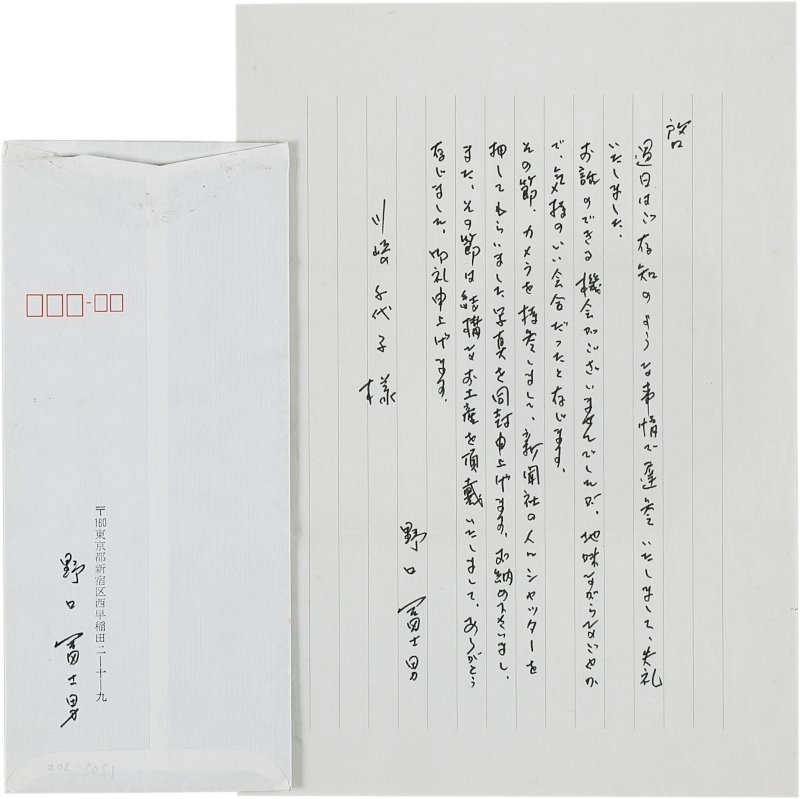 啓
過日はご存知のような事情で遅参いたしまして、失礼
いたしました。
お話のできる機会がございませんでしたが、地味ながらなごやか
で、気持のいい会合だったと存じます。
その節、カメラを持参しまして、新聞社の人にシャッターを
押してもらいました写真を同封申上げます。お納め下さいまし。
また、その節は結構なお土産を頂戴いたしまして、ありがとう
存じました。御礼申上げます。
野口冨士男
川崎千代子様
〒160東京都新宿区西早稲田二ー十ー九
野口冨士男